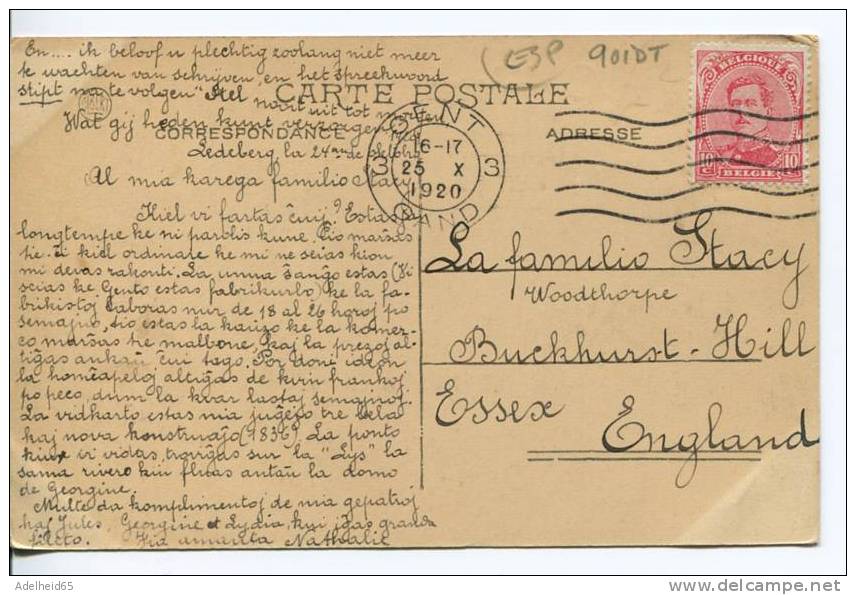 En.... ik beloof u plechtig zoolang niet meer
te wachten van schrijven, en het spreekwoord
stipt na te volgen "Stel nooit uit tot morgen
Wat gij heden kunt verzorgen"
(ESP 901DT
CARTE POSTALE
CORRESPONDANCE
ADRESSE
GENT
3 3
16-17
25 X
1920
GAND
BELGIQUE
10 c 10
BELGIE
Ledeberg, la 24an de
Al mia karega familio Stacy
Kiel vi fartas ĉiuj? Estas ja
longtempe ke ni parolis kune. Ĉio marŝas
tie-ĉi kiel ordinare ke mi ne scias kion
mi devas rakonti. La unua ŝanĝo estas (Vi
scias ke Gento estas fabrikurbo) ke la fa-
brikistoj laboras nur de 18 al 26 horoj po
semajno, tio estas la kaŭzo ke la komer-
co marŝas tre malbone, kaj la prezoj al-
tiĝas ankaŭ ĉiu tago. Por doni ideon
la altiĝas de kvin frankoj
po peco, dum la kvar lastaj semajnoj.
La vidkarto estas mia juĝejo tre bela
kaj nova konstruaĵo (1836). La ponto
kiun vi vidas, troviĝas sur la "Lys" la
sama rivero kiu fluas antaŭ la domo
de Georgine.
Multe da komplimentoj de mia gepatroj
kaj Jules, Georgine et Lydia, kiu iĝas granda
fileto. Via amanta Nathalie
La familio Stacy
Woodthorpe
Buckhurst-Hill
Essex
England
Adelheid65
delcampe.net